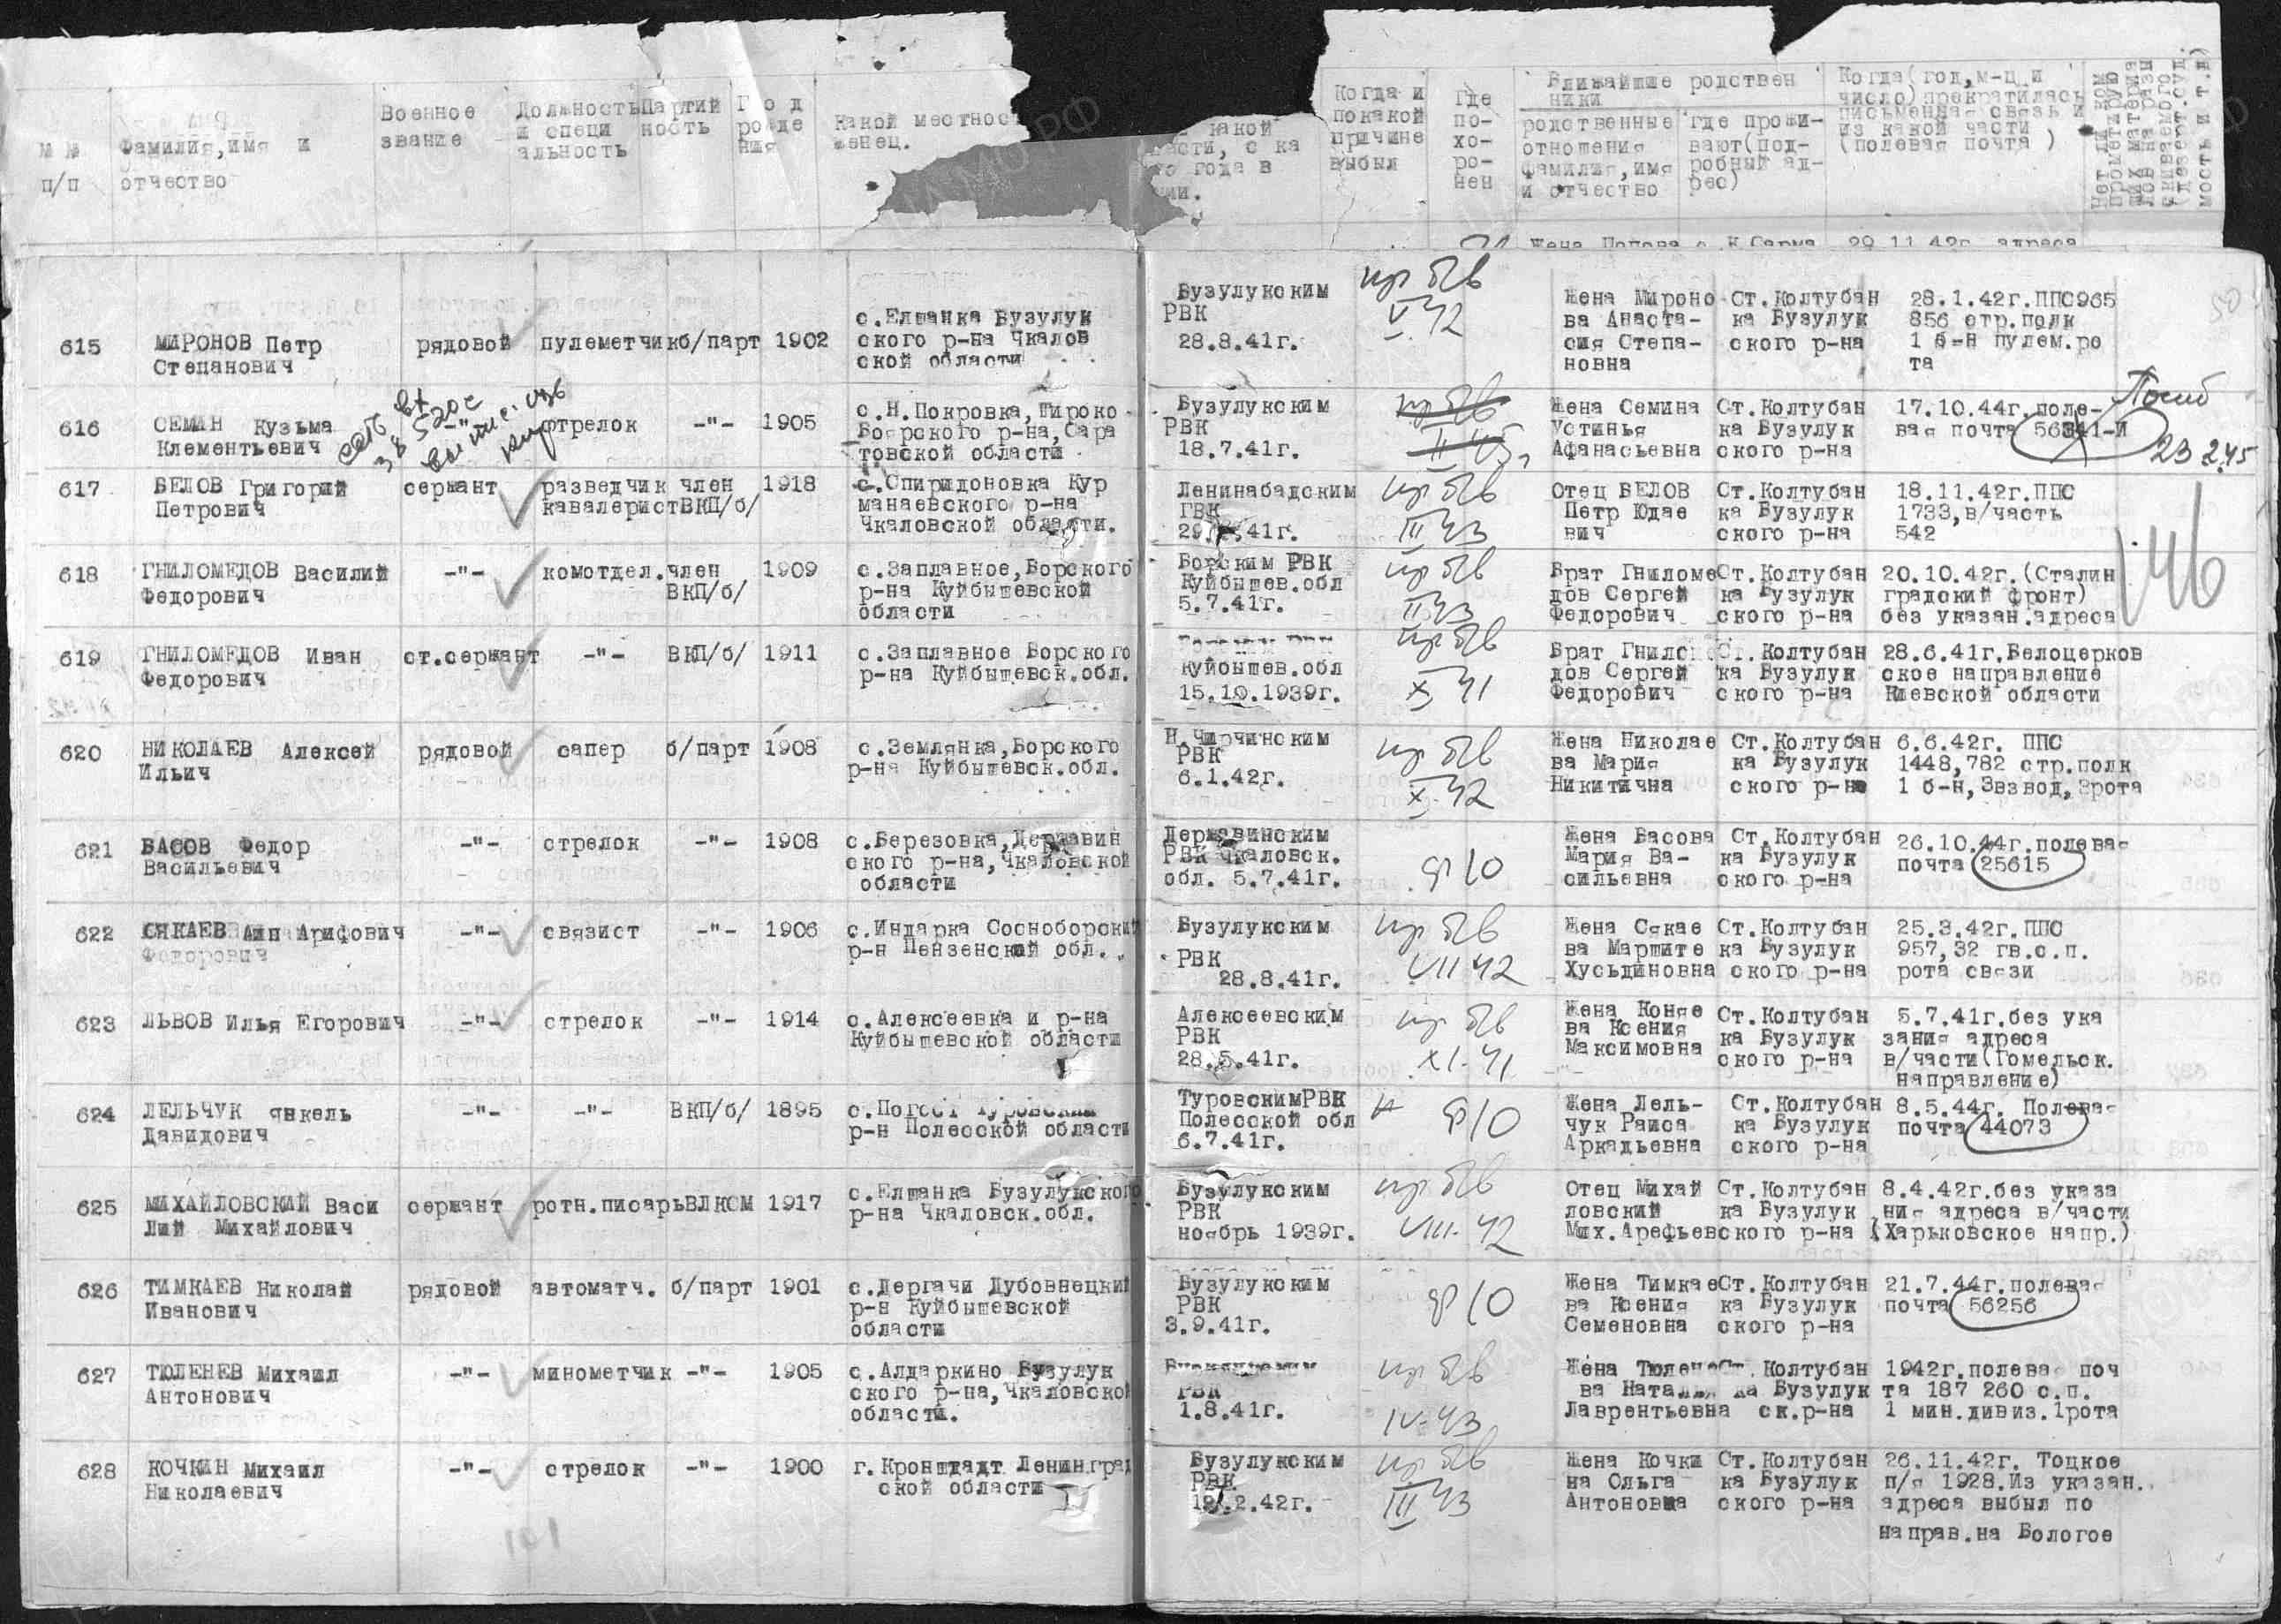 № №
п/п
Фамилия, имя и
отчество
Военное
звание
Должность
и специ
альность
Партий
ность
Год
рожде
ния
Какой местнос
женец.
какой
асти, с ка
го года в
ии.
Когда и
по какой
причине
выбыл
Где
по-
хо-
ро-
нен
Ближайшие родствен
ники
родственные
отношения
фамилия, имя
и отчество
где прожи-
вают(под-
робный ад-
рес)
Когда(год,м-ц и
число)прекратилась
письменная связь и
из какой части
(полевая почта )
Жена Попова с.К.Сарма 29.11.42г. адреса
615
МИРОНОВ Петр
Степанович
рядовой
пулеметчик
б/парт
1902
с.Елшанка Бузулук
ского р-на Чкалов
ской области
Бузулукским
РВК
28.8.41г.
пр б/в
V 42
Жена Мироно
ва Анаста-
сия Степа-
новна
Ст.Колтубан
ка Бузулук
ского р-на
28.1.42г.ППС965
856 стр.полк
1 б-н пулем.ро
та
50
616
СЕМИН Кузьма
Клементьевич
-"-
стрелок
-"-
1905
с.Н.Покровка,Широко
Боярского р-на,Сара
товской области
Бузулукским
РВК
18.7.41г.
пр б/в
II 45
Жена Семина
Устинья
Афанасьевна
Ст.Колтубан
ка Бузулук
ского р-на
17.10.44г.поле-
вая почта 56341-И
Погиб
23 2.45
617
БЕЛОВ Григорий
Петрович
сержант
разведчик
кавалерист
член
ВКП/б/
1918
с.Спиридоновка Кур
манаевского р-на
Чкаловской области.
Ленинабадским
ГВК
41г.
пр б/в
III 43
Отец БЕЛОВ
Петр Юдае
вич
Ст.Колтубан
ка Бузулук
ского р-на
18.11.42г.ППС
1733,в/часть
542
146
618
ГНИЛОМЕДОВ Василий
Федорович
-"-
комотдел.
член
ВКП/б/
1909
с.Заплавное,Борского
р-на Куйбышевской
области
Борским РВК
Куйбышев.обл
5.7.41г.
пр б/в
II 43
Брат Гниломе
дов Сергей
Федорович
Ст.Колтубан
ка Бузулук
ского р-на
20.10.42г.(Сталин
градский фронт)
без указан.адреса
619
ГНИЛОМЕДОВ Иван
Федорович
ст.сержант
-"-
ВКП/б/
1911
с.Заплавное Борского
р-на Куйбышевск.обл.
Куйбышев.обл
15.10.1939г.
пр б/в
X 41
Брат Гнило
дов Сергей
Федорович
Ст.Колтубан
ка Бузулук
ского р-на
28.6.41г.Белоцерков
ское направление
Киевской области
620
НИКОЛАЕВ Алексей
Ильич
рядовой
сапер
б/парт
1908
с.Землянка,Борского
р-на Куйбышевск.обл.
Н.Чирчинским
РВК
6.1.42г.
пр б/в
X-42
Жена Николае
ва Мария
Никитична
Ст.Колтубан
ка Бузулук
ского р-на
6.6.42г. ППС
1448,782 стр.полк
1 б-н,3взвод,3рота
621
БАСОВ Федор
Васильевич
-"-
стрелок
-"-
1908
с.Березовка,Державин
ского р-на,Чкаловской
области
Державинским
РВК Чкаловск.
обл. 5.7.41г.
ф 10
Жена Басова
Мария Ва-
сильевна
Ст.Колтубан
ка Бузулук
ского р-на
26.10.44г.полевая
почта 25615
622
СЯКАЕВ Аип Арифович
Федорович
-"-
связист
-"-
1906
с.Индарка Сосноборский
р-н Пензенской обл.
Бузулукским
РВК
28.8.41г.
пр б/в
VII 42
Жена Сякае
ва Маршите
Хусьдиновна
Ст.Колтубан
ка Бузулук
ского р-на
25.3.42г.ППС
957,32 гв.с.п.
рота связи
623
ЛЬВОВ Илья Егорович
-"-
стрелок
-"-
1914
с.Алексеевка и р-на
Куйбышевской области
Алексеевским
РВК
28.5.41г.
пр б/в
XI-41
Жена Коняе
ва Ксения
Максимовна
Ст.Колтубан
ка Бузулук
ского р-на
5.7.41г.без ука
зания адреса
в/части(Гомельск.
направление)
624
ЛЕЛЬЧУК Янкель
Давидович
-"-
-"-
ВКП/б/
1895
с.Погост Туровский
р-н Полесской области
ТуровскимРВК
Полесской обл
6.7.41г.
ф10
Жена Лель-
чук Раиса
Аркадьевна
Ст.Колтубан
ка Бузулук
ского р-на
8.5.44г. Полевая
почта 44073
625
МИХАЙЛОВСКИЙ Васи
лий Михайлович
сержант
ротн.писарь
ВЛКСМ
1917
с.Елшанка Бузулукского
р-на Чкаловск.обл.
Бузулукским
РВК
ноябрь 1939г.
пр б/в
VIII-42
Отец Михай
ловский
Мих.Арефьев
Ст.Колтубан
ка Бузулук
ского р-на
8.4.42г.без указа
ния адреса в/части
(Харьковское напр.)
626
ТИМКАЕВ Николай
Иванович
рядовой
автоматч.
б/парт
1901
с.Дергачи Дубовнецкий
р-н Куйбышевской
области
Бузулукским
РВК
3.9.41г.
ф10
Жена Тимкае
ва Ксения
Семеновна
Ст.Колтубан
ка Бузулук
ского р-на
21.7.44г.полевая
почта 56256
627
ТЮЛЕНЕВ Михаил
Антонович
-"-
минометчик
-"-
1905
с.Алдаркино Бузулук
ского р-на,Чкаловской
области.
Бузулукским
РВК
1.8.41г.
пр б/в
IV-43
Жена Тюлене
ва Наталья
Лаврентьевна
Ст.Колтубан
ка Бузулук
ск.р-на
1942г.полевая поч
та 187 260 с.п.
1 мин.дивиз.1рота
628
КОЧКИН Михаил
Николаевич
-"-
стрелок
-"-
1900
г.Кронштадт Ленинград
ской области
Бузулукским
РВК
2.42г.
пр б/в
III 43
Жена Кочки
на Ольга
Антоновна
Ст.Колтубан
ка Бузулук
ского р-на
26.11.42г. Тоцкое
п/я 1928.Из указан.
адреса выбыл по
направ.на Бологое
101